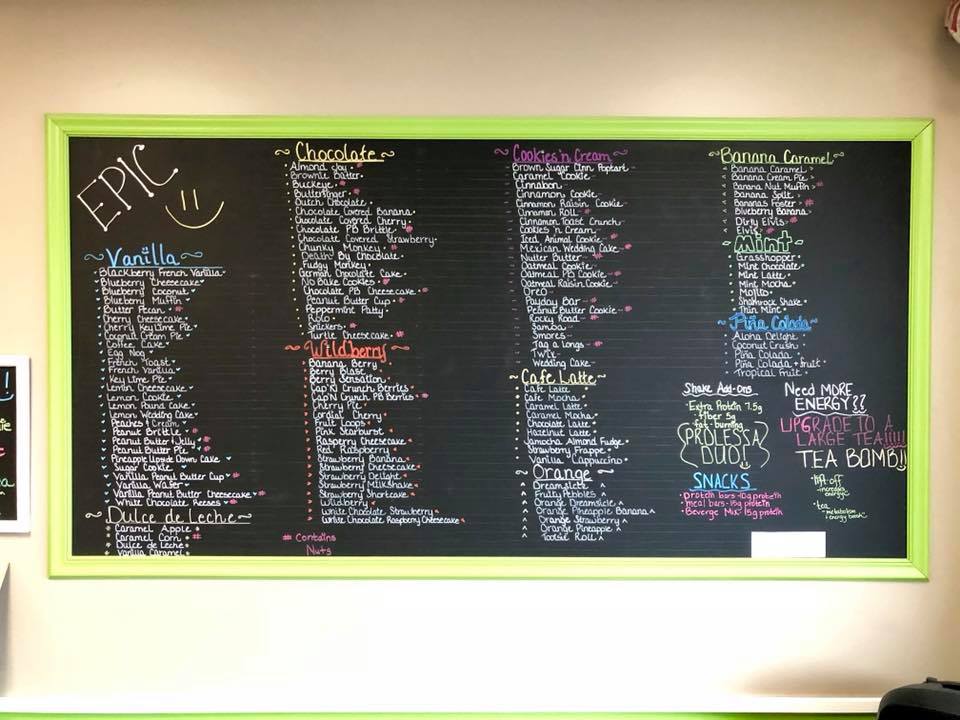 EPIC
~ Vanilla ~
Blackberry French Vanilla
Blueberry Cheesecake
Blueberry Coconut
Blueberry Muffin
Butter Pecan #
Cherry Cheesecake
Cherry Key Lime Pie
Coconut Cream Pie
Coffee Cake
Egg Nog
French Toast
French Vanilla
Key Lime Pie
Lemon Cheesecake
Lemon Cookie
Lemon Pound Cake
Lemon Wedding Cake
Peaches & Cream
Peanut Brittle #
Peanut Butter & Jelly #
Pineapple Upside Down Cake
Sugar Cookie
Vanilla Peanut Butter Cup #
Vanilla Wafer
Vanilla Peanut Butter Cheesecake #
White Chocolate Reeses #
~ Dulce de Leche ~
Caramel Apple
Caramel Corn #
Dulce de Leche
Vanilla Caramel
~ Chocolate ~
Almond Joy #
Brownie Batter
Buckeye #
Butterfinger #
Dutch Chocolate
Chocolate Covered Banana
Chocolate Covered Cherry
Chocolate PB Brittle #
Chocolate Covered Strawberry
Chunky Monkey #
Death By Chocolate
Fudgy Monkey
German Chocolate Cake
No Bake Cookies #
Chocolate PB Cheesecake #
Peanut Butter Cup #
Peppermint Patty
Rolo
Snickers #
Turtle Cheesecake #
~ Wildberry ~
Banana Berry
Berry Blast
Berry Sensation
Cap'N Crunch Berries
Cap'N Crunch PB Berries #
Cherry Pie
Cordial Cherry
Fruit Loops
Pink Starburst
Raspberry Cheesecake
Red Raspberry
Strawberry Banana
Strawberry Cheesecake
Strawberry Delight
Strawberry Milkshake
Strawberry Shortcake
Wildberry
White Chocolate Strawberry
White Chocolate Raspberry Cheesecake
# Contains
Nuts
~ Cookies 'n Cream ~
Brown Sugar Cinn. Poptart
Caramel Cookie
Cinnabon
Cinnamon Cookie
Cinnamon Raisin Cookie
Cinnamon Roll
Cinnamon Toast Crunch
Cookies 'n Cream
Iced Animal Cookie
Mexican Wedding Cake #
Nutter Butter #
Oatmeal Cookie
Oatmeal PB Cookie #
Oatmeal Raisin Cookie
Oreo
Payday Bar #
Peanut Butter Cookie #
Rocky Road #
Samoa
Smores
Tag a longs #
Twix
Wedding Cake
~ Cafe Latte ~
Cafe Latte
Cafe Mocha
Caramel Latte
Caramel Mocha
Chocolate Latte
Hazelnut Latte
Jamocha Almond Fudge
Strawberry Frappe
Vanilla Cappuccino
~ Orange ~
Dreamsicle
Fruity Pebbles
Orange Dreamsicle
Orange Pineapple Banana
Orange Strawberry
Orange Pineapple
Tootsie Roll
~ Banana Caramel ~
Banana Caramel
Banana Cream Pie
Banana Nut Muffin #
Banana Split
Bananas Foster #
Blueberry Banana
Dirty Elvis #
Elvis #
~ Mint ~
Grasshopper
Mint Chocolate
Mint Latte
Mint Mocha
Mojito
Shamrock Shake
Thin Mint
~ Piña Colada ~
Aloha Delight
Coconut Crush
Piña Colada
Piña Colada + fruit
Tropical Fruit
Shake Add-Ons
Extra Protein 7.5g
fiber 5g
fat-burning
PROLESSA
DUO!
SNACKS
protein bars - 10g protein
meal bars - 15g protein
Beverge Mix - 15g protein
Need MORE
ENERGY??
UPGRADE TO A
LARGE TEA!!!!!
TEA BOMB!!
lift off
-increased
energy
tea
-metabolism
+ energy boost